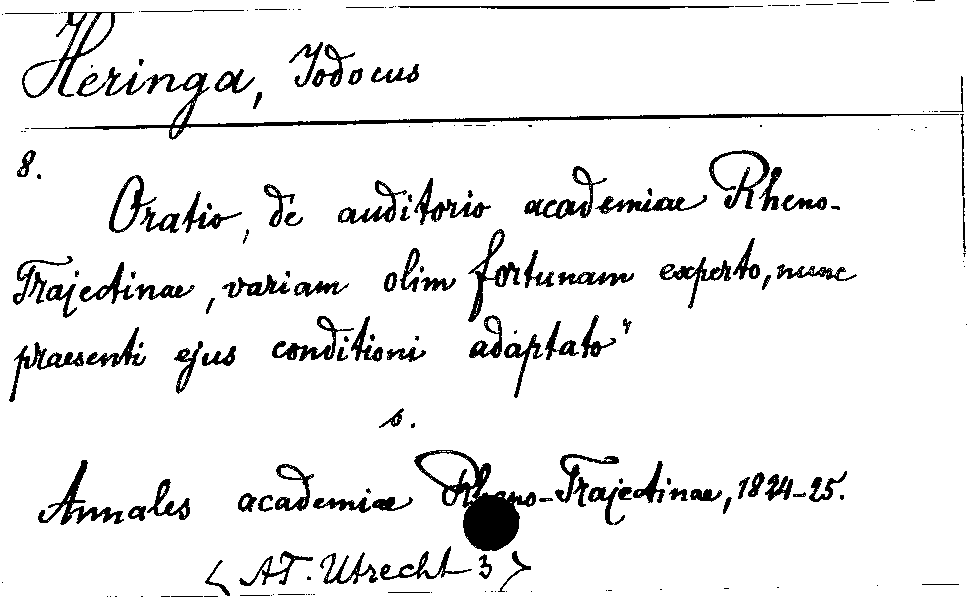 Heringa, Jodocus
8.
Oratio, de auditorio academiae Rheno-
Trajectinae, variam olim fortunam experto, nunc
praesenti ejus conditioni adaptato"
s.
Annales academiae Rheno-Trajectinae, 1824-25.
<AT. Utrecht 3>